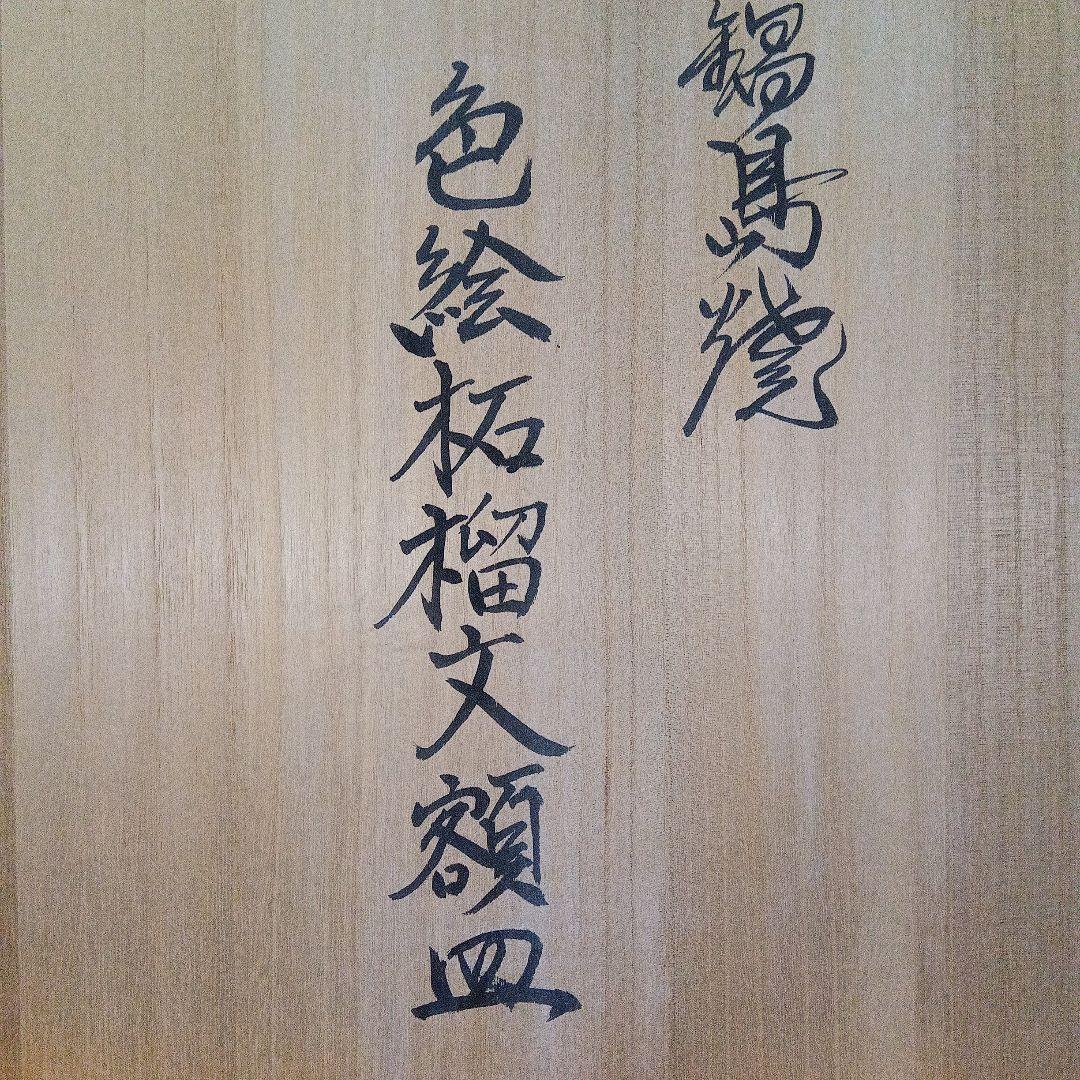 鍋島燒
色絵柘榴文額皿